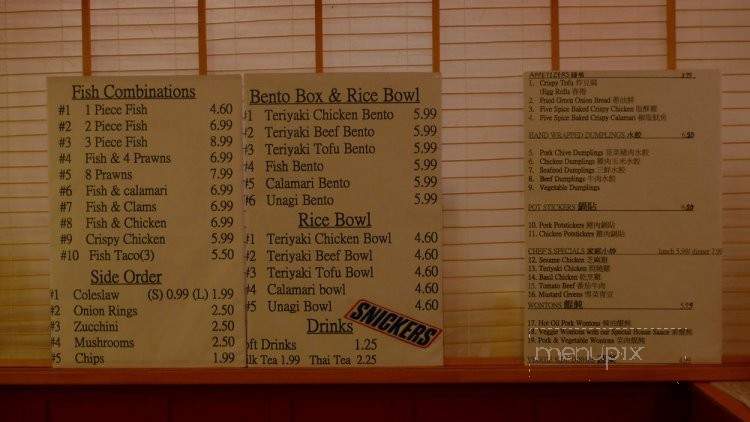 Fish Combinations
#1 1 Piece Fish 4.60
#2 2 Piece Fish 6.99
#3 3 Piece Fish 8.99
#4 Fish & 4 Prawns 6.99
#5 8 Prawns 7.99
#6 Fish & calamari 6.99
#7 Fish & Clams 6.99
#8 Fish & Chicken 6.99
#9 Crispy Chicken 5.99
#10 Fish Taco(3) 5.50
Side Order
#1 Coleslaw (S) 0.99 (L) 1.99
#2 Onion Rings 2.50
#3 Zucchini 2.50
#4 Mushrooms 2.50
#5 Chips 1.99
Bento Box & Rice Bowl
#1 Teriyaki Chicken Bento 5.99
#2 Teriyaki Beef Bento 5.99
#3 Teriyaki Tofu Bento 5.99
#4 Fish Bento 5.99
#5 Calamari Bento 5.99
#6 Unagi Bento 5.99
Rice Bowl
#1 Teriyaki Chicken Bowl 4.60
#2 Teriyaki Beef Bowl 4.60
#3 Teriyaki Tofu Bowl 4.60
#4 Calamari bowl 4.60
#5 Unagi Bowl 4.60
SNICKERS
Drinks
oft Drinks 1.25
ilk Tea 1.99 Thai Tea 2.25
APPETIZERS
1. Crispy Tofu
/Egg Rolls 春卷
2. Fried Green Onion Bread
3. Five Spice Baked Crispy Chicken
4. Five Spice Baked Crispy Calamari
HAND WRAPPED DUMPLINGS 水餃
5. Pork Chive Dumplings 韭菜豬肉水餃
6. Chicken Dumplings 雞肉玉米水餃
7. Seafood Dumplings 三鮮水餃
8. Beef Dumplings 牛肉水餃
9. Vegetable Dumplings
POT STICKERS 鍋貼
10. Pork Potstickers 豬肉鍋貼
11. Chicken Potstickers 雞肉鍋貼
CHEF'S SPECIALS lunch 5.99/ dinner 7.99
12. Sesame Chicken 芝麻雞
13. Teriyaki Chicken
14. Basil Chicken
15. Tomato Beef 番茄牛肉
16. Mustard Greens
WONTONS 餛飩
17. Hot Oil Pork Wontons
18. Veggie Wontons with our Special House Sauce
19. Pork & Vegetable Wontons
menupix